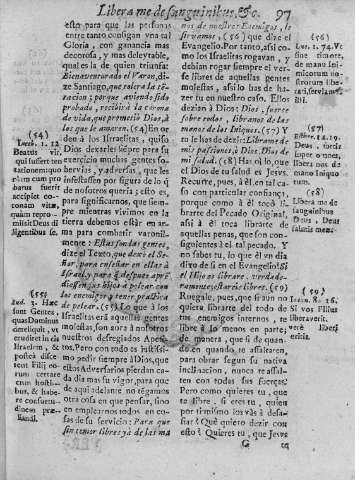 Libera me de sanguinibus, &c. 97
esto para que las personas
entre tanto consigan vna tal
Gloria, con ganancia mas
decorosa, y mas deleytable,
qual es la de quien triunfa:
Bienaventurado el Varon, dize
Santiago, que tolera la tentacion;
porque aviendo sido
probado, recibirà la corona
de vida, que prometiò Dios, à
los que le amaren. (54) En orden
à los Israelitas, quiso
Dios dexarles Iepte para su
exercicio muchas gentes soberbias,
y valientes, no solo
porque fuesse figura de lo que
de nosotros queria; esto es,
para significarnos, que siempre
mientras vivimos en la
tierra debemos estàr en arma
para combatir varonilmente:
Estas son las gentes,
dize el Texto, que dexò el Señor,
para enseñar en ellas à
Israel, y para que despues aprendiessen
sus hijos à pelear con
los enemigos, y tener practica
de pelear. (55) Lo que à los
Israelitas eran aquellas gentes
molestas, son aora à nosotros
nuestros desreglados Apetitos.
Pero con todo es justissimo
pedir siempre à Dios, que
estos Adversarios pierdan cada
dia mas su vigor, para que
de aqui adelante no tengamos
otra cosa en que pensar, sino
en emplearnos todos en cosas
de su servicio: Para que
sin temor libres yà de las ma-
(54)
Iacob. 1. 12.
Beatus vir,
qui suffert tentationem,
quoniam
cum probatus
fuerit
accipiet coronam
vitæ,
quam repromisit
Deus diligentibus
se.
(55)
Iud. 3. Hæ
sunt Gentes,
quas Dominus
dereliquit, vt
erudiret in eis
Israelem, &
posteà discerent
Filij eorum
certare
cum hostibus,
& habere
consuetudinem
præliandi.
nos de nuestros Enemigos, le
sirvamos, (56) que dize el
Evangelio. Por tanto, assi como
los Israelitas rogavan, y
debian rogar siempre el verse
libres de aquellas gentes
molestas, assi lo has de hazer
tu en nuestro caso. Ellos
dezian à Dios: Dios, fuerte
sobre todos, libranos de las
manos de los Iniquos. (57) Y
tu le has de dezir: Librame de
mis passiones, ò Dios, Dios de
mi salud. (58) Haz lo, que
el Dios de tu salud es Jesvs.
Recurre, pues, à èl en tal caso
con particular confiança,
porque como à èl le tocò librarte
del Pecado Original,
assi à èl toca librarte de
aquellas penas, que son consiguientes
à el tal pecado. Y
no sabes tu, lo que èl vn dia
dixo de si en el Evangelio? Si
el Hijo os librare, verdaderamente
estareis libres. (59)
Ruegale, pues, que si aun no
quisiere librarte del todo de
tus enemigos internos, te
libre à lo menos en parte,
de manera, que si de quando
en quando te assaltaren,
para obrar segun su nativa
inclinacion, nunca te assalten
con todas sus fuerças.
Pero como quieres tu, que
te libre, si eres tu, quien
por tì mismo los vàs à desafiar?
Què quiero dezir con
esto? Quieres tu, que Jesvs
G te
(56)
Luc. 1. 74. Vt
sine timore,
de manu inimicorum
nostrorum
liberati,
serviamus illi.
(57)
Esther. 14. 19.
Deus, fortis
super omnes,
libera nos de
manu Iniquorum.
(58)
Libera me de
sanguinibus
Deus, Deus
salutis meæ.
(59)
Ioann. 8. 36.
Si vos Filius
liberaverit,
verè liberi
eritis.